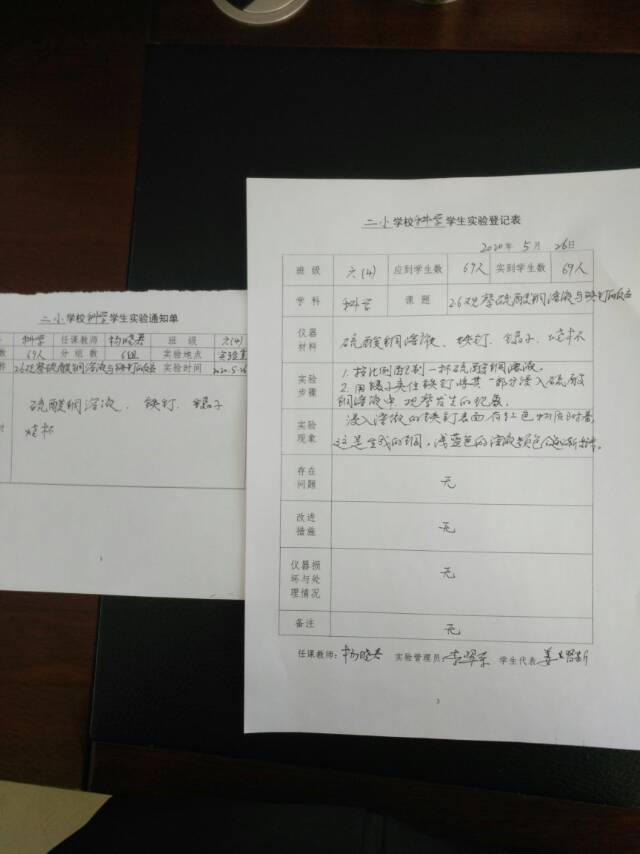 二小学校科学学生实验通知单
科学 任课教师 杨晓春 班 级 六(4)
数 69人 分组数 6组 实验地点 实验室
称 26观察硫酸铜溶液与铁钉的反应 实验时间 2020.5.26
硫酸铜溶液、铁钉、镊子
烧杯
1
二小学校科学学生实验登记表
2020年 5月 26日
班 级 六(4) 应到学生数 69人 实到学生数 69人
学 科 科学 课 题 26观察硫酸铜溶液与铁钉的反应
仪器
材料
硫酸铜溶液、铁钉、镊子、烧杯
实验
步骤
1.按比例配制一杯硫酸铜溶液。
2.用镊子夹住铁钉将其一部分浸入硫酸
铜溶液中,观察发生的现象。
实验
现象
浸入溶液的铁钉表面有红色物质附着,
这是生成的铜,浅蓝色的溶液颜色
存在
问题
无
改进
措施
无
仪器损
坏与处
理情况
无
备注
无
任课教师: 杨晓春 实验管理员: 学生代表: 姜
3